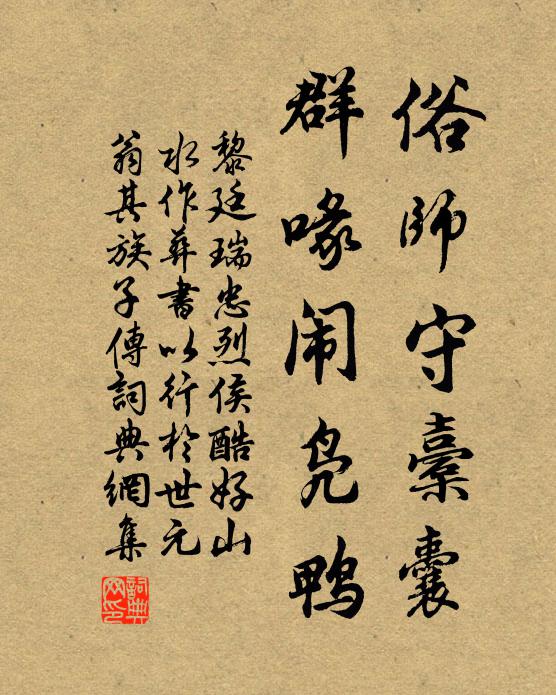 俗師守橐囊
群喙闹凫鴨
黎廷瑞忠烈侯酷好山
水作葬書以行於世元
翁其族子傳詞典網集
詞典网印